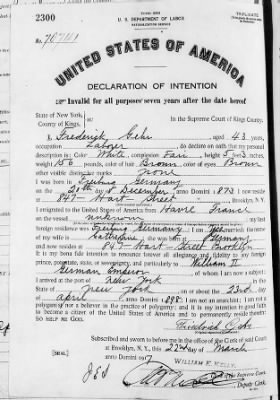 2300
U. S. DEPARTMENT OF LABOR
NATURALIZATION SERVICE
TRIPLICATE
No.
UNITED STATES OF AMERICA
DECLARATION OF INTENTION
Invalid for all purposes seven years after the date hereof
State of New York,
County of Kings,
In the Supreme Court of Kings County.
I, Frederick Gehr, aged 43 years,
occupation Laborer, do declare on oath that my personal
description is: Color White, complexion Fair, height 5 feet 3 inches,
weight 156 pounds, color of hair Brown, color of eyes Brown
other visible distinctive marks none
I was born in Freiburg Germany
on the day of December, anno Domini 1873; I now reside
at 847 Hart Street, Brooklyn, N.Y.
I emigrated to the United States of America from Havre France
on the vessel unknown; my last
foreign residence was Freiburg Germany
wife is Catherine, she was born in Germany
and now resides at 847 Hart Street Brooklyn
It is my bona fide intention to renounce forever all allegiance and fidelity to any foreign
prince, potentate, state, or sovereignty, and particularly to William II
German Emperor, of whom I am now a subject;
I arrived at the port of New York, in the
State of New York, on or about the 23rd day
of April, anno Domini 1898; I am not an anarchist; I am not a
polygamist nor a believer in the practice of polygamy; and it is my intention in good faith
to become a citizen of the United States of America and to permanently reside therein:
SO HELP ME GOD.
Subscribed and sworn to before me in the office of the Clerk of said Court
at Brooklyn, N.Y., this 22nd day of March
anno Domini 1917
[SEAL]
WILLIAM E. KELLY,
Clerk of the Supreme Court.
Deputy Clerk.